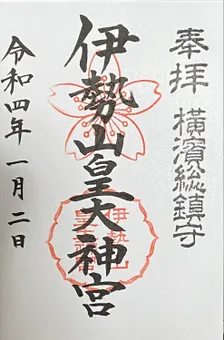 奉拝 横濱総鎮守
伊勢山皇大神宮
令和四年一月二日
伊勢山
皇大神宮